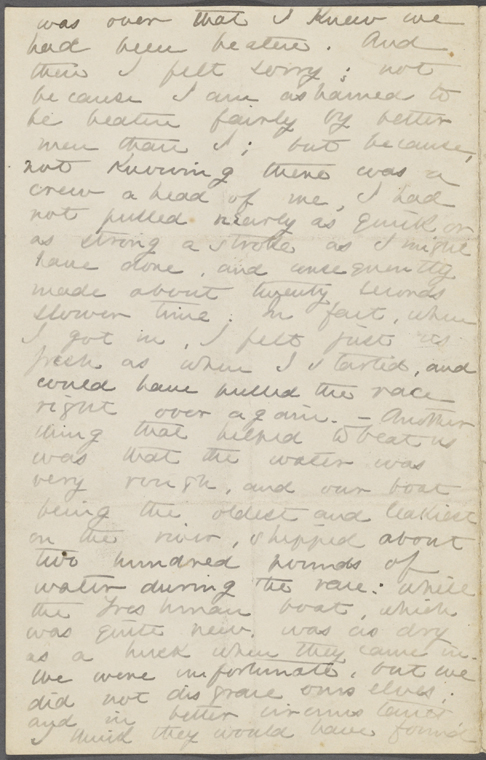 was over that I knew we
had been beaten. And
then I felt sorry; not
because I am ashamed to
be beaten fairly by better
men than I; but because,
not knowing there was a
crew ahead of me, I had
not pulled nearly as quick or
as strong a stroke as I might
have done, and consequently
made about twenty seconds
slower time. In fact, when
I got in, I felt just as
fresh as when I started, and
could have pulled the race
right over again. – Another
thing that helped to beat us
was that the water was
very rough, and our boat
being the oldest and leakiest
on the river, shipped about
two hundred pounds of
water during the race: while
the Freshman boat, which
was quite new, was as dry
as a huck when they came in.
We were unfortunate, but we
did not disgrace ourselves;
and in better circumstances
I think they would have found